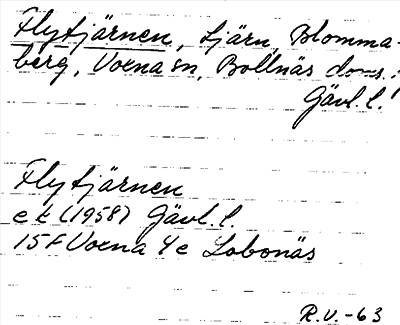 Flytjärnen, tjärn, Blomma-
berg, Voxna sn, Bollnäs doms.,
Gävl. l.
Flytjärnen
ek (1958) Gävl. l.
15F Voxna 4e Lobonäs
R.V.-63